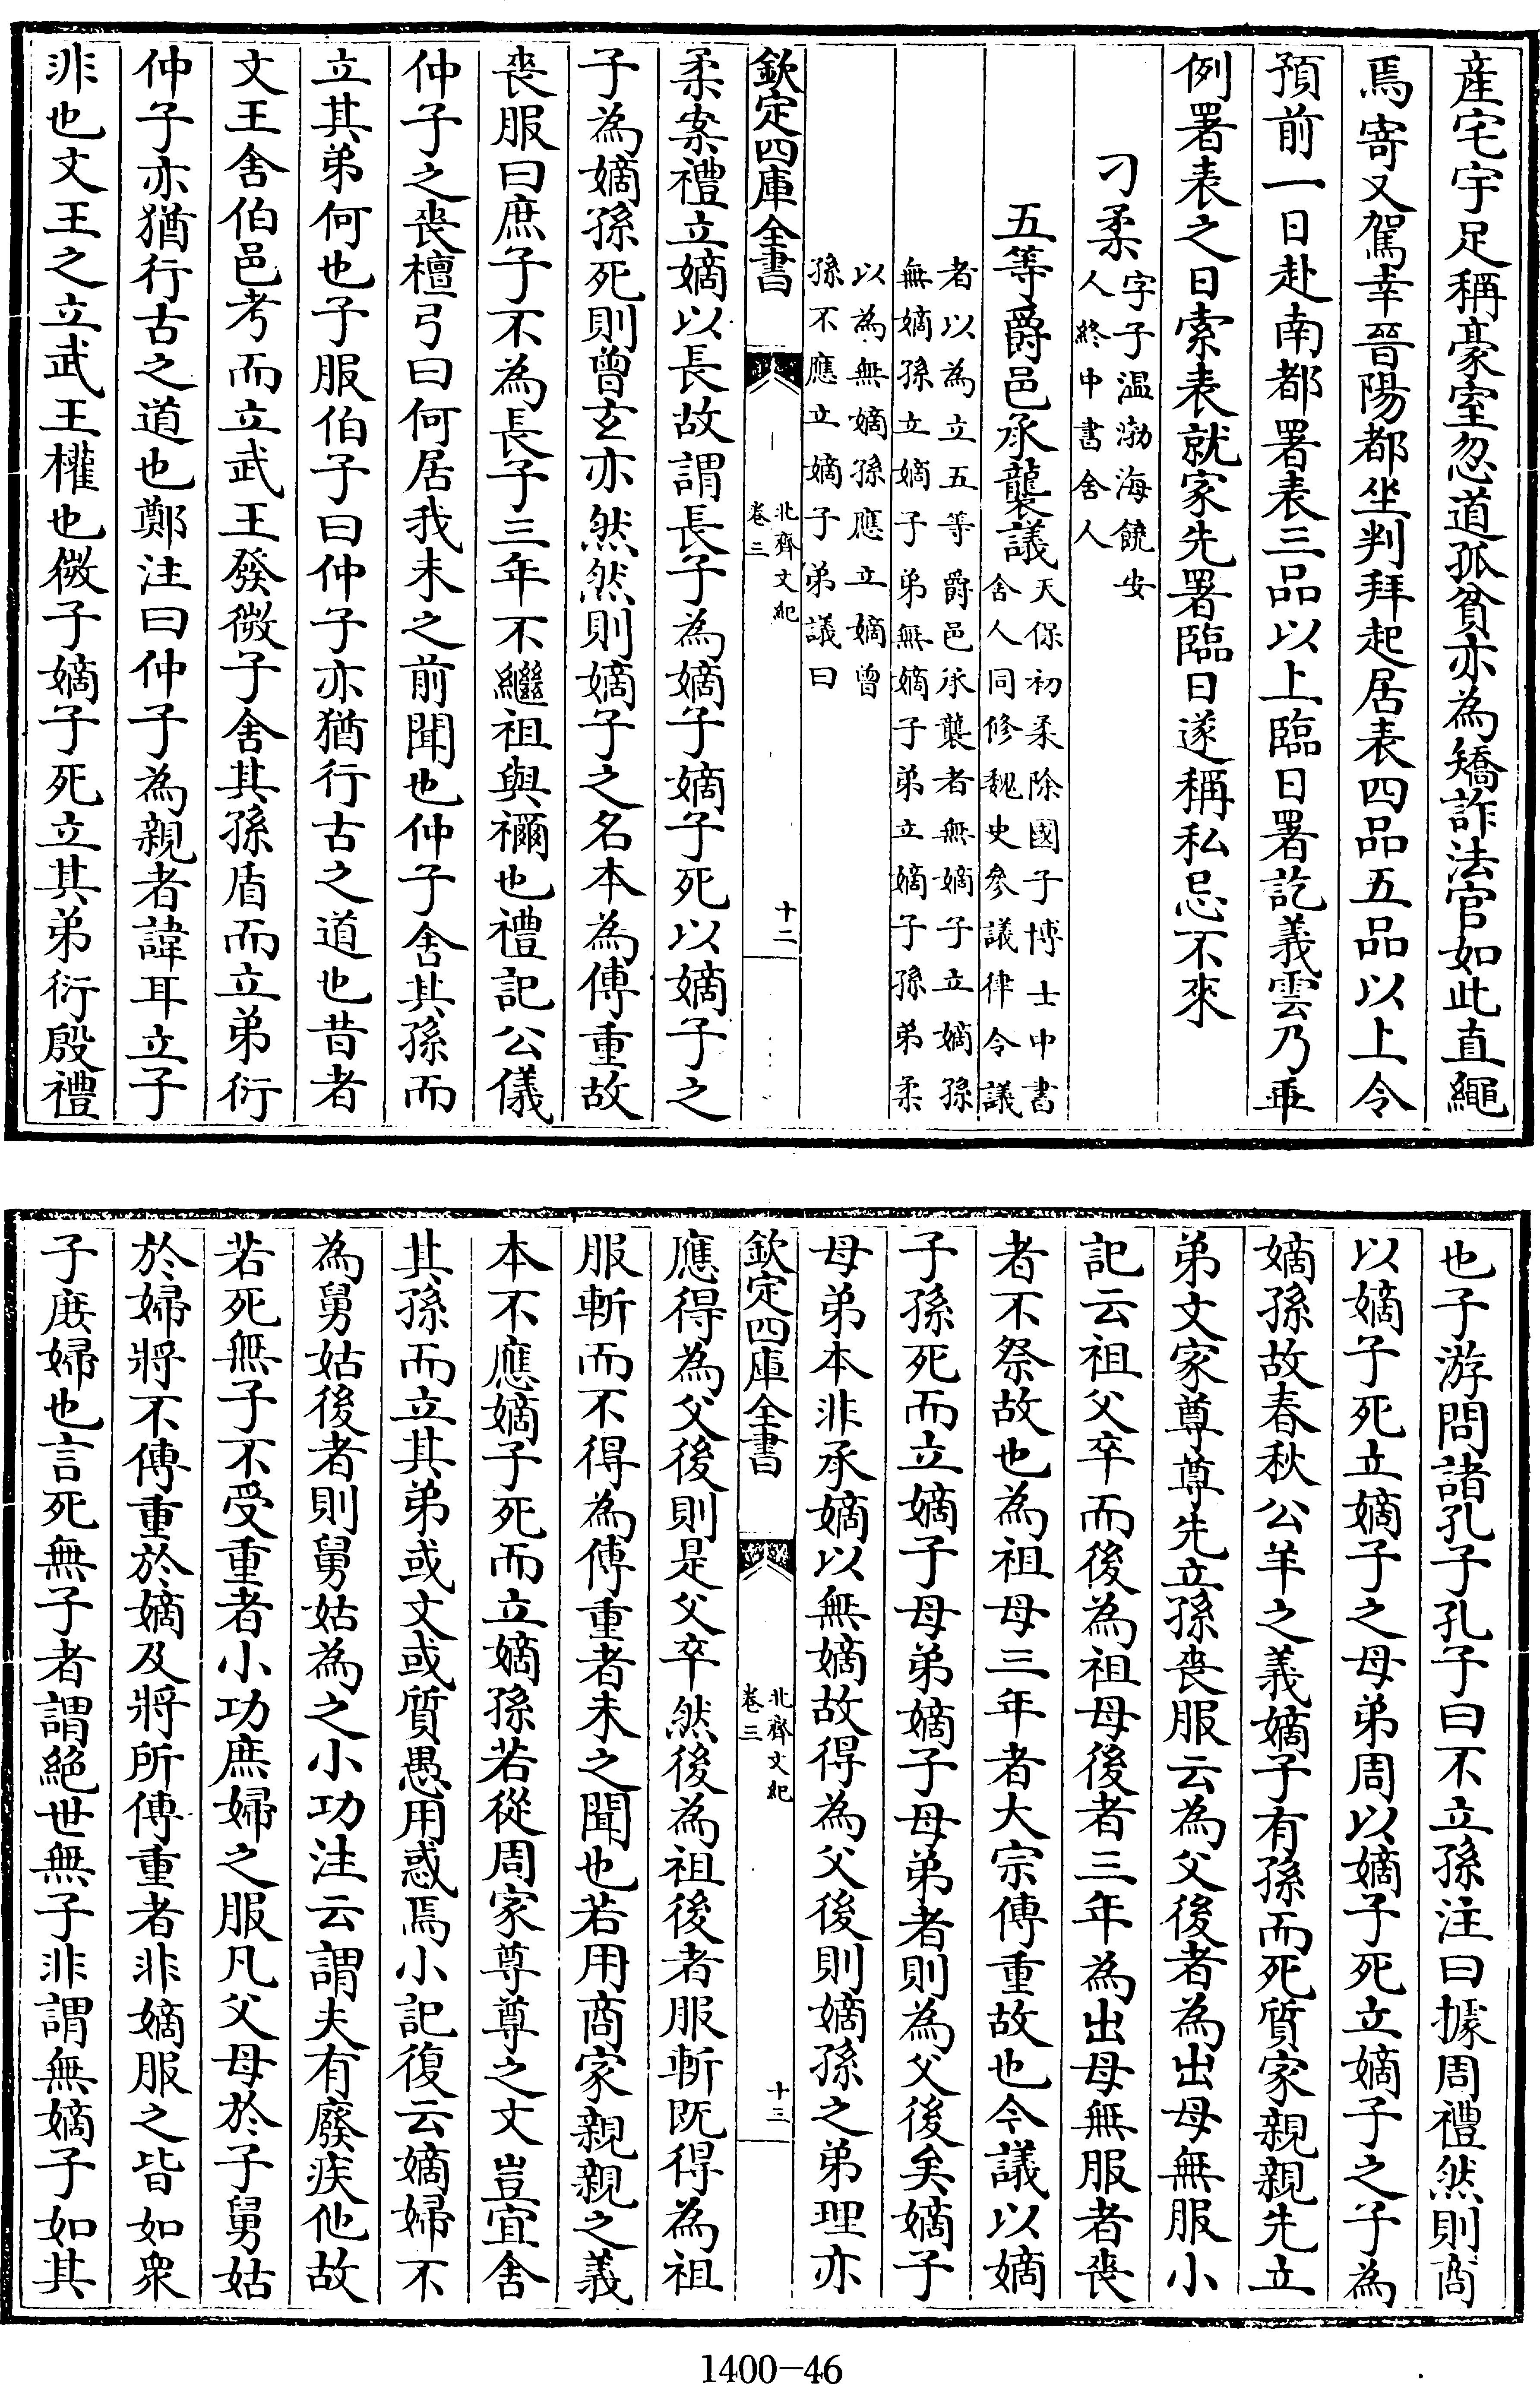 産宅宇足稱豪室忽道孤貧亦為矯詐法官如此直繩
焉寄又駕幸晉陽都坐判拜起居表四品五品以上令
預前一日赴南都署表三品以上臨日署訖義雲乃乖
例署表之日索表就家先署臨日遂稱私忌不來
刁柔字子温渤海饒安
人終中書舍人
五等爵邑承襲議天保初柔除國子博士中書
舍人同修魏史參議律令議
者以為立五等爵邑承襲者無嫡子立嫡孫
無嫡孫立嫡子弟無嫡子弟立嫡子孫弟柔
以為無嫡孫應立嫡曾
孫不應立嫡子弟議曰
欽定四庫全書
北齊文紀
卷三
十二
柔案禮立嫡以長故謂長子為嫡子嫡子死以嫡子之
子為嫡孫死則曾玄亦然然則嫡子之名本為傳重故
喪服曰庶子不為長子三年不繼祖與禰也禮記公儀
仲子之喪檀弓曰何居我未之前聞也仲子舍其孫而
立其弟何也子服伯子曰仲子亦猶行古之道也昔者
文王舍伯邑考而立武王發微子舍其孫盾而立弟衍
仲子亦猶行古之道也鄭注曰仲子為親者諱耳立子
非也文王之立武王權也微子嫡子死立其弟衍殷禮
也子游問諸孔子孔子曰不立孫注曰據周禮然則商
以嫡子死立嫡子之母弟周以嫡子死立嫡子之子為
嫡孫故春秋公羊之義嫡子有孫而死質家親親先立
弟文家尊尊先立孫喪服云為父後者為出母無服小
記云祖父卒而後為祖母後者三年為出母無服者喪
者不祭故也為祖母三年者大宗傳重故也令議以嫡
子孫死而立嫡子母弟嫡子母弟者則為父後矣嫡子
母弟本非承嫡以無嫡故得為父後則嫡孫之弟理亦
欽定四庫全書
北齊文紀
卷三
十三
應得為父後則是父卒然後為祖後者服斬既得為祖
服斬而不得為傳重者未之聞也若用商家親親之義
本不應嫡子死而立嫡孫若從周家尊尊之文豈宜舍
其孫而立其弟或文或質愚用惑焉小記復云嫡婦不
為舅姑後者則舅姑為之小功注云謂夫有廢疾他故
若死無子不受重者小功庶婦之服凡父母於子舅姑
於婦將不傳重於嫡及將所傳重者非嫡服之皆如衆
子庶婦也言死無子者謂絶世無子非謂無嫡子如其
1400-46